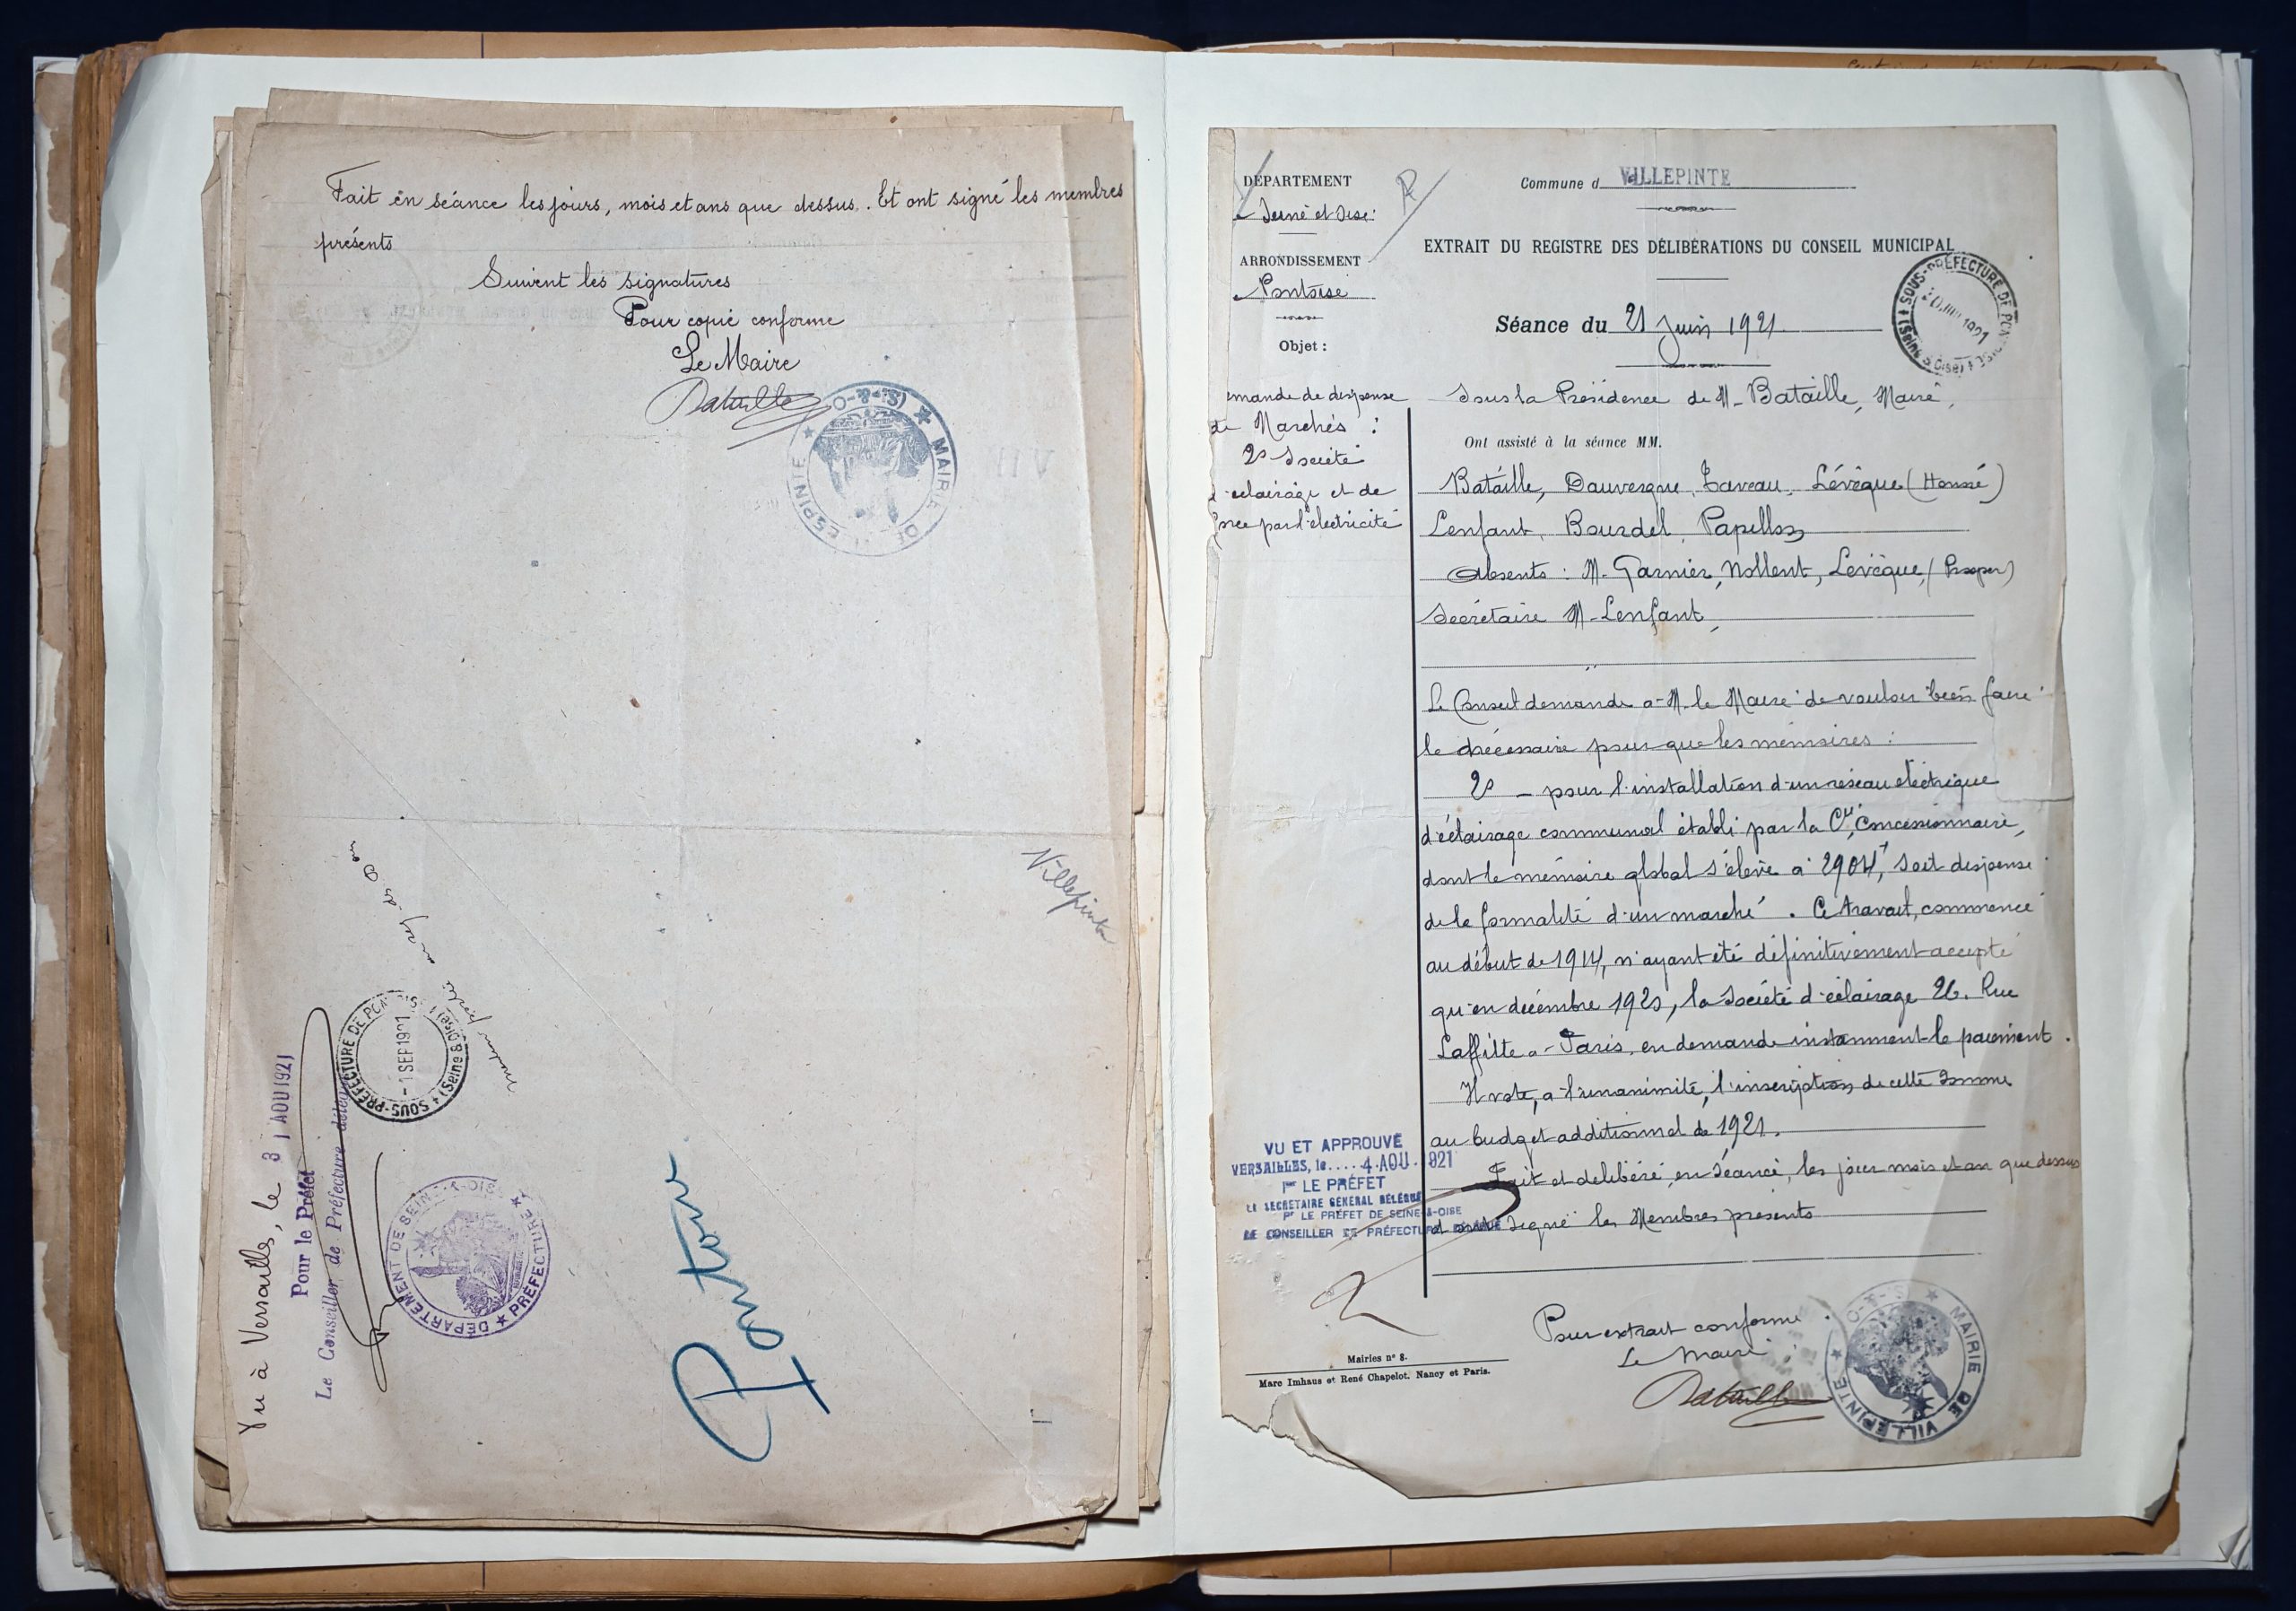 Fait en séance les jours, mois et ans que dessus. Et ont signé les membres
présents
Suivent les signatures
Pour copie conforme
Le Maire
Bataille
MAIRIE DE VILLEPINTE (S.-&-O.)
Villepinte
Vu à Versailles, le 31 AOU 1921
Pour le Préfet
Le Conseiller de Préfecture délégué
SOUS-PRÉFECTURE DE PONTOISE (Seine & Oise)
-1 SEP 1921
DÉPARTEMENT DE SEINE-ET-OISE PRÉFECTURE
Pontoise
DÉPARTEMENT
de Seine et Oise
ARRONDISSEMENT
de Pontoise
Objet :
emande de dispense
de Marchés :
2° Société
d'éclairage et de
force par l'électricité
Commune d VILLEPINTE
EXTRAIT DU REGISTRE DES DÉLIBÉRATIONS DU CONSEIL MUNICIPAL
SOUS-PRÉFECTURE DE PONTOISE (Seine & Oise)
Séance du 21 Juin 1921
Sous la Présidence de M. Bataille, Maire,
Ont assisté à la séance MM.
Bataille, Dauvergne, Taveau, Lévêque (Honoré)
Lenfant, Bourdel, Papillon
Absents : M. Garnier, Nollent, Lévêque (Prosper)
Secrétaire M. Lenfant,
Le Conseil demande à M. le Maire de vouloir bien faire
le nécessaire pour que les mémoires :
2° - pour l'installation d'un réseau électrique
d'éclairage communal établi par la Cie Concessionnaire,
dont le mémoire global s'élève à 2904f, soit dispensé
de la formalité d'un marché. Ce travail, commencé
au début de 1914, n'ayant été définitivement accepté
qu'en décembre 1920, la Société d'éclairage 26. Rue
Laffitte à Paris, en demande instamment le paiement.
Il vote, à l'unanimité, l'inscription de cette somme
au budget additionnel de 1921.
Fait et délibéré, en séance, les jour mois et an que dessus
et ont signé les Membres présents
VU ET APPROUVÉ
VERSAILLES, le .... 4 AOU. 1921
Pr LE PRÉFET
LE SECRÉTAIRE GÉNÉRAL DÉLÉGUÉ
Pr LE PRÉFET DE SEINE-&-OISE
LE CONSEILLER DE PRÉFECTURE DÉLÉGUÉ
Pour extrait conforme
Le Maire
Bataille
MAIRIE DE VILLEPINTE (S-&-O)
Mairies n° 8.
Marc Imhaus et René Chapelot, Nancy et Paris.